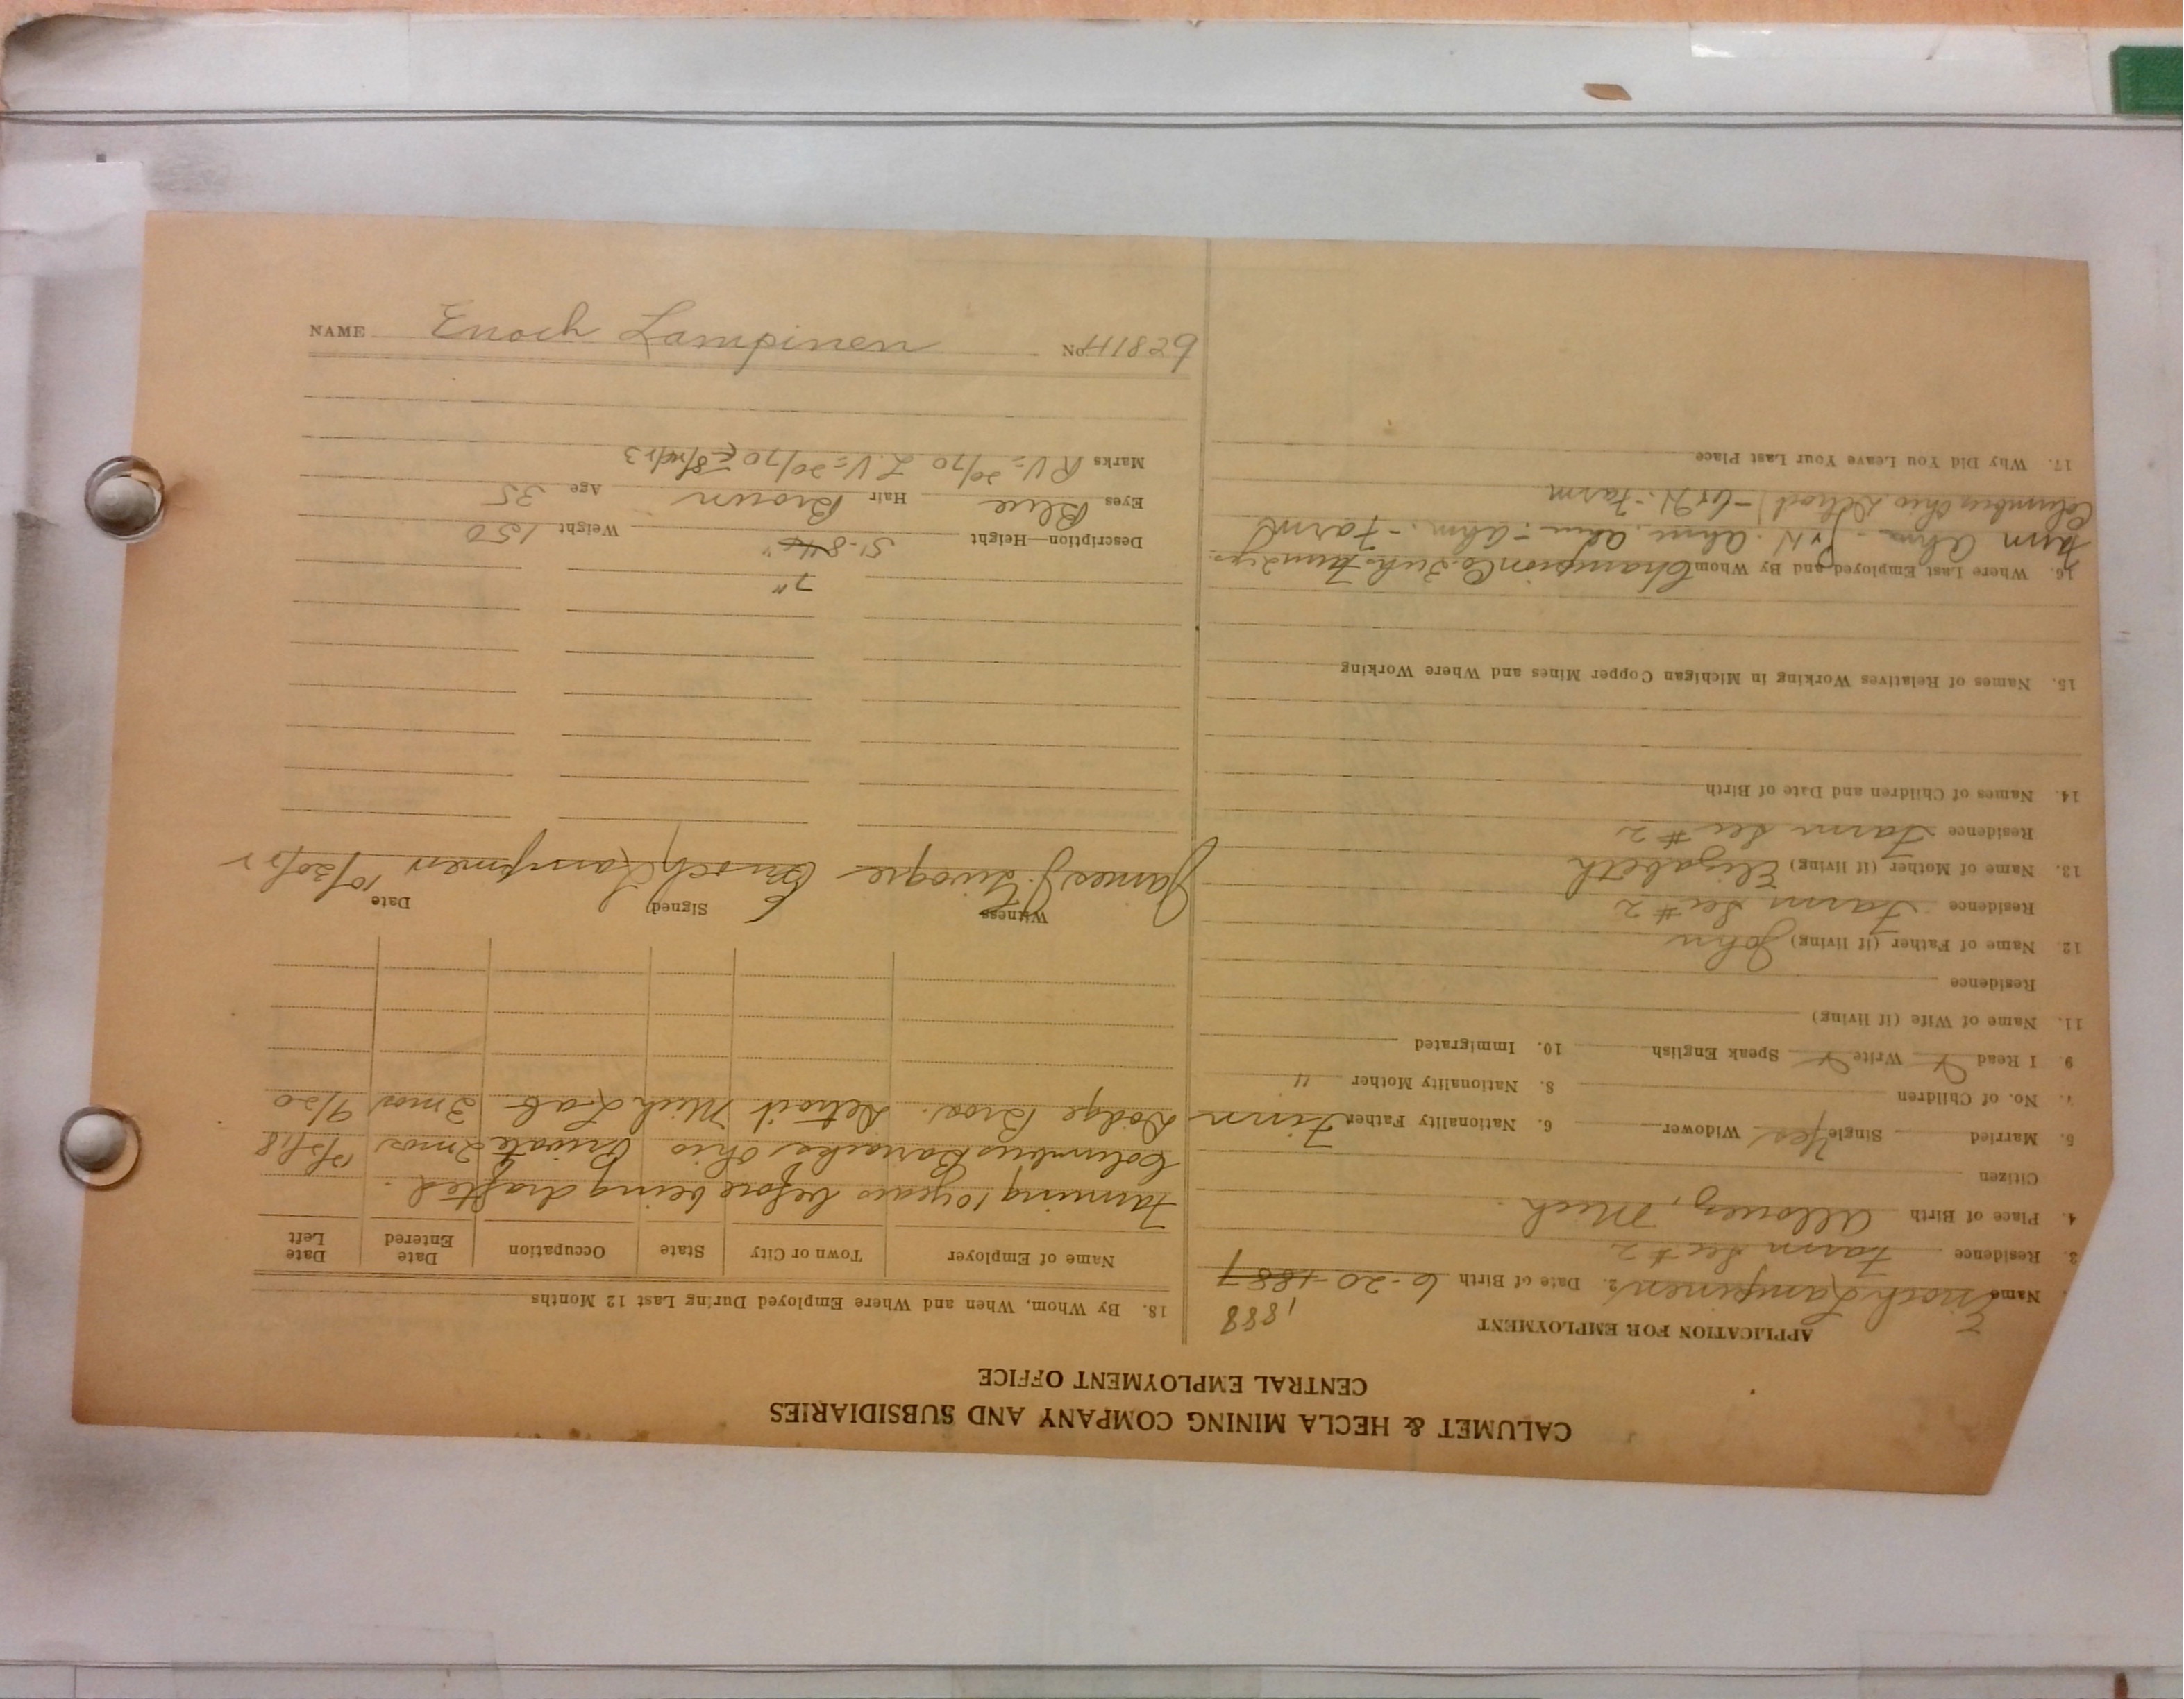 CALUMET & HECLA MINING COMPANY AND SUBSIDIARIES
CENTRAL EMPLOYMENT OFFICE
APPLICATION FOR EMPLOYMENT
1888
Name Enoch Lampinen 2. Date of Birth 6-20-1887
3. Residence Farm Sec #2
4. Place of Birth Allouez, Mich.
Citizen
5. Married Single Yes Widower 6. Nationality Father Finn
7. No. of Children 8. Nationality Mother "
9. I Read Write Speak English 10. Immigrated
11. Name of Wife (if living)
Residence
12. Name of Father (if living) John
Residence Farm Sec #2
13. Name of Mother (if living) Elizabeth
Residence Farm Sec #2
14. Names of Children and Date of Birth
15. Names of Relatives Working in Michigan Copper Mines and Where Working
16. Where Last Employed and By Whom Champion Co.
Farm Ahm. Ahm. Ahm. - Ahm. - Farm
Columbus Ohio Detroit - Farm
17. Why Did You Leave Your Last Place
18. By Whom, When and Where Employed During Last 12 Months
Name of Employer Town or City State Occupation Date Entered Date Left
Farming 10 years before being drafted.
Columbus Barracks Ohio Private 2 mos 12/18
Dodge Bros. Detroit Mich Lab 3 mos 9/20
Witness Signed Date
James J. Enoch Lampinen 10/20/22
7"
Description—Height 5'-8 Weight 150
Eyes Blue Hair Brown Age 35
Marks R.V= 20/70 L.V= 20/70
NAME Enoch Lampinen No.